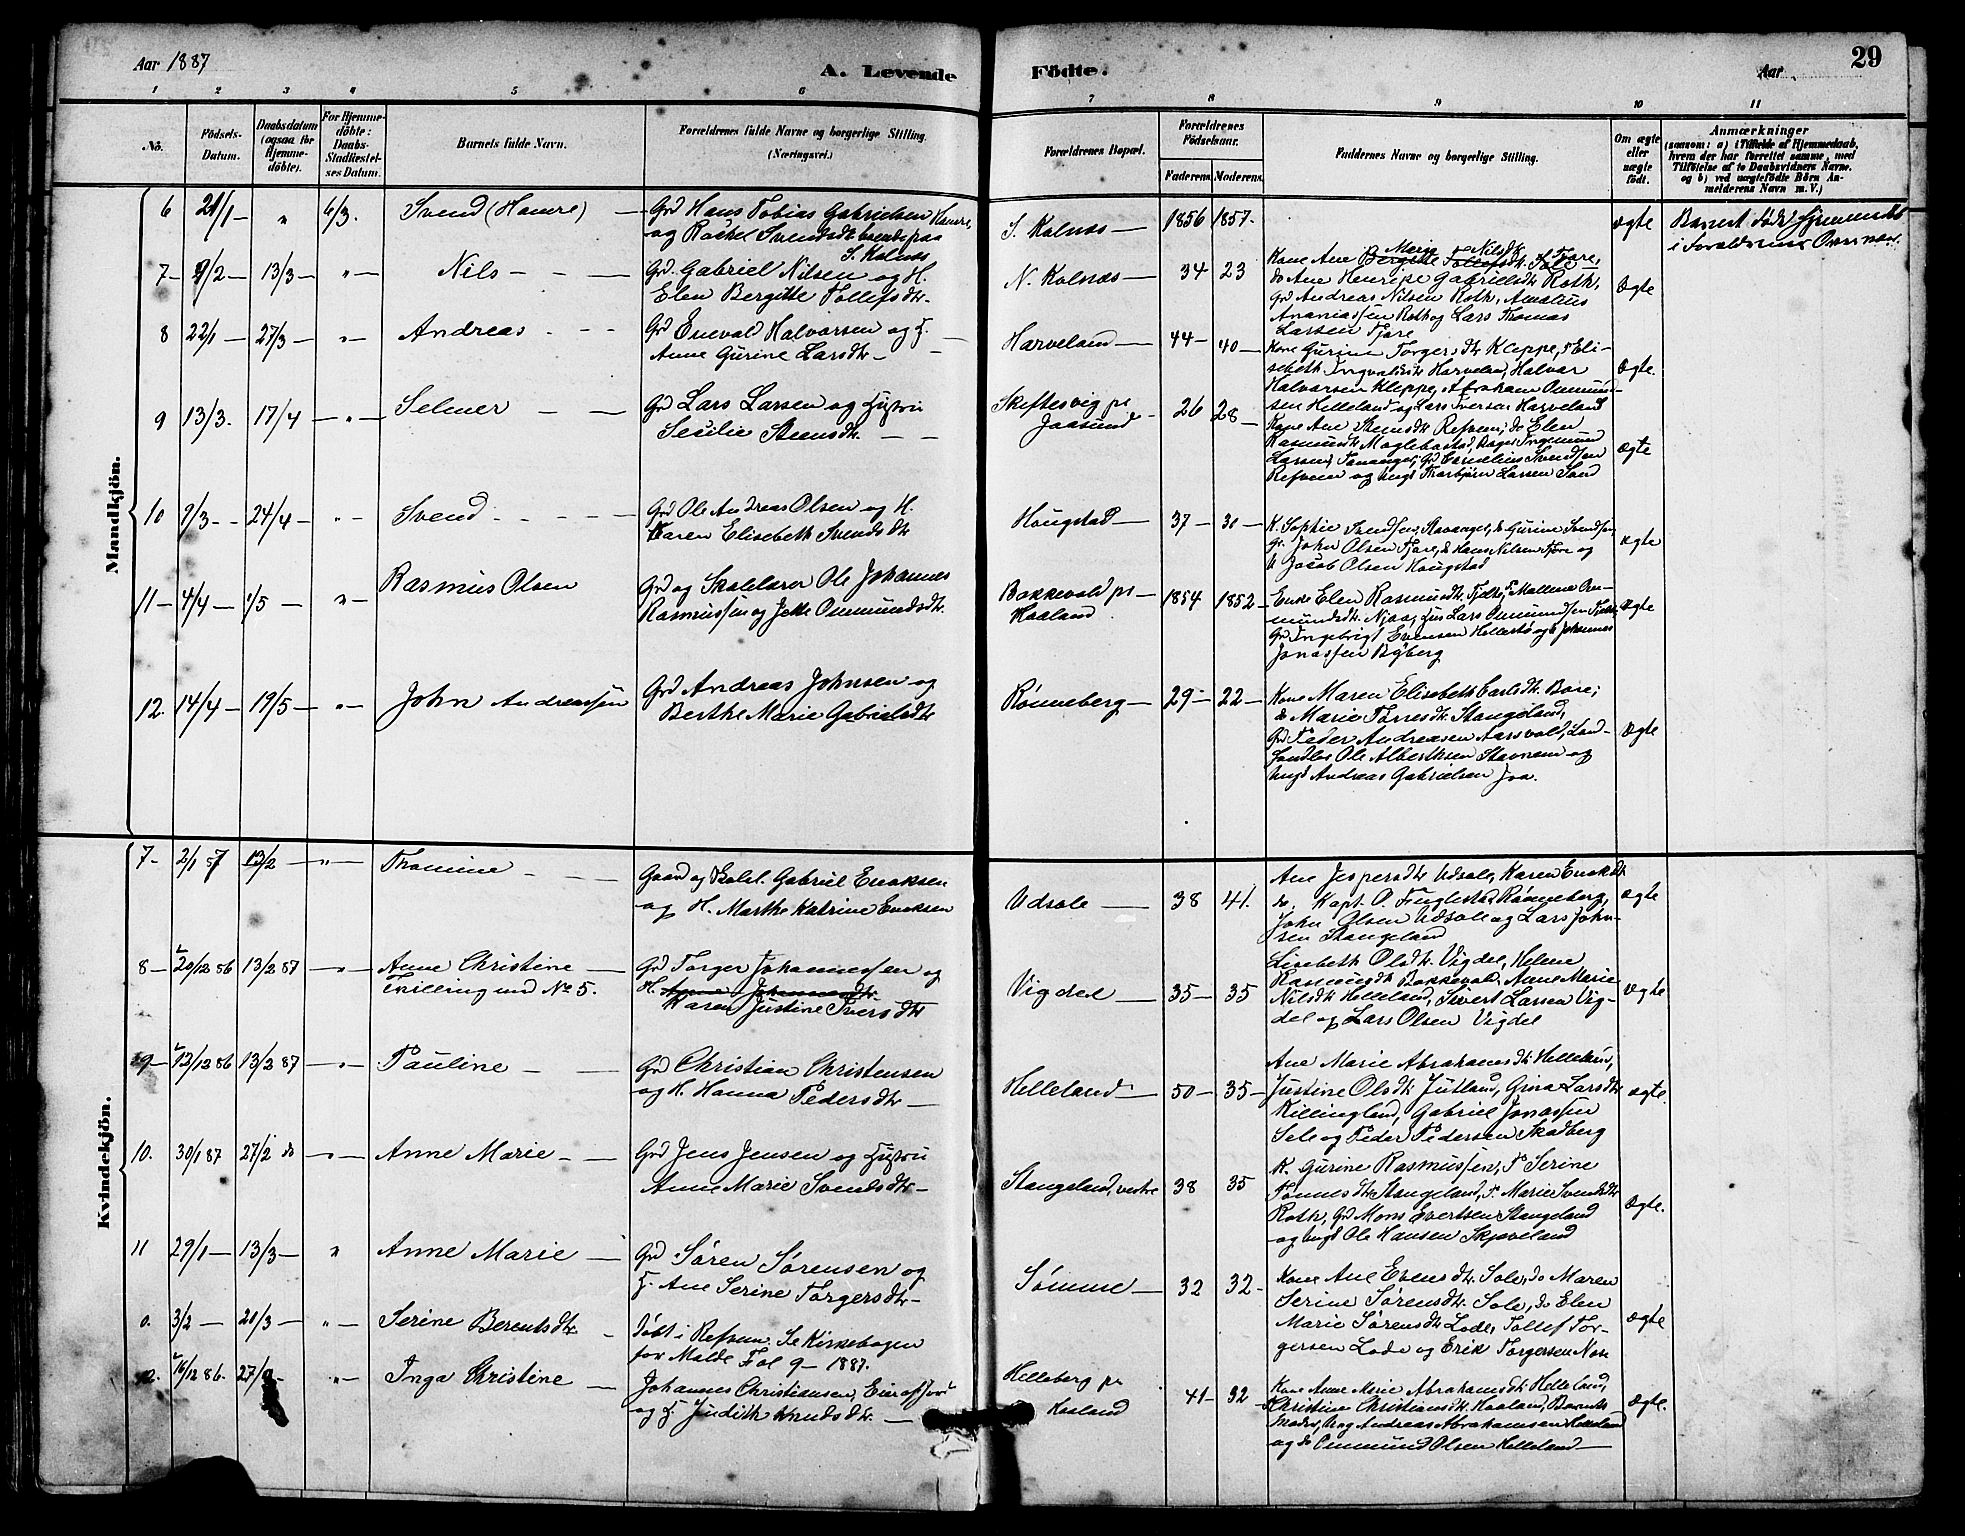 Aar 1887
A. Levende Födte.
Aar
29
1 2 3 4 5 6 7 8 9 10 11
No.
Födsels-
Datum.
Daabsdatum
(ogsaa for
Hjemme-
döbte).
For Hjemme-
döbte:
Daabs-
Stadfæstel-
ses Datum.
Barnets fulde Navn.
Forældrenes fulde Navne og borgerlige Stilling.
(Næringsvei.)
Forældrenes Bopæl.
Forældrenes
Födselsaar.
Faderens. Moderens.
Faddernes Navne og borgerlige Stilling.
Om ægte
eller
uægte
födt.
Anmærkninger
(saasom: a) i Tilfælde af Hjemmedaab,
hvem der har forrettet samme, med
Tilföielse af to Daabsvidners Navne,
og b) ved uægtefödte Börn An-
melderens Navn m. V.)
Mandkjön.
6 21/1 — „ 6/3. Svend (Hamre) — Grd Hans Tobias Gabrielsen Hamre,
og Rakel Svendsdtr boende paa
S. Kolnæs
S. Kolnæs — 1856 1857.
ægte
Barnet födt
i Forældrenes
7 — 9/2 — 13/3 — „ — Nils — — Grd. Gabriel Nilsen og H.
Elen Bergitte Tollefsdtr.
N. Kolnæs — 34 23
Kone Ane Marie Nilsdtr. Tjore,
do Ane Henrike Gabrielsdtr Roth,
Grd Andreas Nilsen Roth, Amalius
Ananiassen Roth og Lars Thomas
Larsen Tjore
Ægte
8 22/1 — 27/3 — „ — Andreas — — Grd Enevald Halvorsen og H.
Anne Gurine Larsdtr —
Harveland — 44 — 40 —
Kone Gurine Torgersdtr Kleppe, P. Eli-
sebeth Ingvaldsdtr Harveland, Halvor
Halvorsen Kleppe, Abraham Ommund-
sen Helleland og Lars Iversen Harveland
Ægte.
9 13/3. 17/4 — „ — Selmer — — Grd Lars Larsen og Hustru
Secilie Steensdtr. — —
Skiftesvig pr
Jaasund — 26 28 —
Kone Ane Steensdtr Refsem; do Elen
Rasmusdtr Maglebostad,
Larsen, Tananger, Grd Cornelius Svendsen
Refsem og Ungk Thorbjørn Larsen Sand
ægte
10 7/3 — 24/4 — „ — Svend — — Grd Ole Andreas Olsen og H.
Karen Elisebeth Svendsdtr
Hougstad — 37 — 31 —
K. Sophie Svendsen, Stavanger, do Gurine Svendsen,
Gr. John Olsen Tjore, do Hans Nilsen Tjore og
do Jacob Olsen Hougstad
ægte
11 — 4/4 — 1/5 — „ — Rasmus Olsen Grd og Skolelærer Ole Johannes
Rasmussen og Jette Ommundsdtr.
Bakkevold pr —
Haaland. 1854 1852 —
Enke Elen Rasmusdtr. Tjelta, P. Mallena Om-
mundsdtr. Njaa, Hus Lars Ommundsen Tjelta,
Grd Ingebrigt Evensen Hellestø og do Johannes
Jonassen Byberg
Ægte
12. 14/4 — 19/5 — „ — John Andreassen Grd Andreas Johnsen og
Berthe Marie Gabrielsdtr
Rønneberg — 29 — 22 —
Kone Maren Elisebeth Carlsdtr. Bore;
do Marie Torresdtr. Stangeland,
Grd Peder Andreasen Aarsvold, Lan-
handler Ole Albertksen Stavnem og
Ungk Andreas Gabrielsen Joa.
Ægte
Kvindekjön.
7 — 2/1 87 13/2 — „ — Tromine — — Gaard og Skolel. Gabriel Enoksen
og H. Marthe Katrine Enoksen
Udsole — 38 41.
Ane Jespersdtr Udsole, Karen Enoksdtr
do, Kapt. O. Fuglestad Rønneberg,
John Olsen Udsole og Lars John-
sen Stangeland
ægte
8 — 20/12 86 13/2 87 — „ — Anne Christine —
Tvilling med No 5.
Grd Torger Johannessen og
H. Anne Johannesdtr.
Karen Justine Iversdtr
Vigdel — 35 — 35
Lisebeth Olsdtr. Vigdel, Helene
Rasmusdtr Bakkevold, Anne Marie
Nilsdtr Helleland, Sivert Larsen Vig-
del og Lars Olsen Vigdel
Ægte
9 — 12/12 86 13/2 87 — „ — Pauline — — Grd Christian Christensen
og H. Hanna Pedersdtr —
Helleland — 50 — 35 —
Ane Marie Abrahamsdtr Helleland,
Justine Olsdtr Jutland, Gina Larsdtr
Killingland, Gabriel Jonassen
Sele og Peder Pedersen Skadberg
ægte.
10. 30/1 87 27/2 do — „ — Anne Marie — — Grd Jens Jensen og Hustru
Anne Marie Svendsdtr. —
Stangeland, vestre 38 35
K. Gurine Rasmussen, P. Serine
Tønnesdtr Stangeland, P. Marie Svendsdtr
Roth, Grd Mons Evertsen Stangeland
og Ungk Ole Hansen Skjæveland
Ægte.
11 29/1 — 13/3 — „ Anne Marie — Grd Søren Sørensen og
H. Ane Serine Torgersdtr —
Sømme — 32 32 —
Kone Ane Evensdtr. Sole, do Maren
Serine Sørensdtr. Sole, do Elen
Marie Sørensdtr Lode, Tollef Tor-
gersen Lode og Erik Torgersen Næse
ægte
0. 3/2 — 20/3 — „ — Serine Berentsdtr — Döbt i Refsem. Se Kirkebogen
for Malde Fol 9 — 1887.
12. 16/12 86. 27/ — „ — Inga Christine — Johannes Christiansen,
og H. Judith Knudsdtr. —
Helleberg pr
Haaland 41 — 32 —
Kone Anne Marie Abrahamsdtr Helleland,
Christine Christiansdtr. Haaland, Barnets
Moder, Ung Andreas Abrahamsen Helleland
og do Ommund Olsen Helleland —
Ægte.